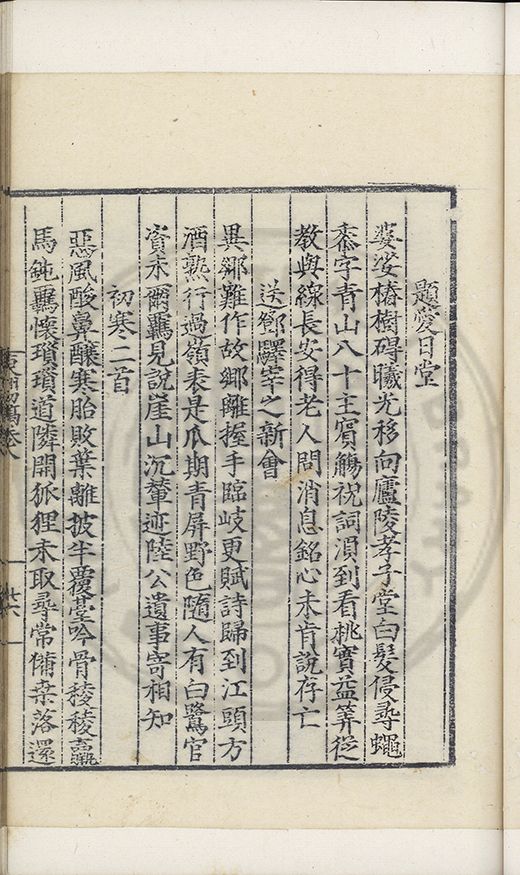 題愛日堂
婆娑椿樹碍曦光移向廬陵孝子堂白髮侵尋蠅
黍字青山八十主賓觴祝詞湏到看桃實益筭從
教與線長安得老人問消息銘心未肯說存亡
送鄧驛宰之新會
異鄉難作故鄉離握手臨岐更賦詩歸到江頭方
酒熟行過嶺表是瓜期青屏野色隨人有白鷺官
資未爾羈見說崖山沉輦迹陸公遺事寄相知
初寒二首
惡風酸鼻釀寒胎敗葉離披半覆臺吟骨稜稜羸
馬鈍羈懷瑣瑣道隣開狐狸未取尋常備桒落還